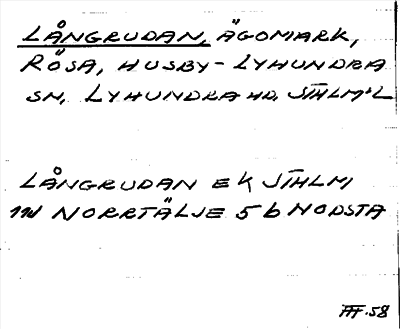 LÅNGRUDAN, ÄGOMARK,
RÖSA, HUSBY-LYHUNDRA
SN, LYHUNDRA HD, STHLM:L
LÅNGRUDAN EK STHLM
11d NORRTÄLJE 5 b NODSTA
58